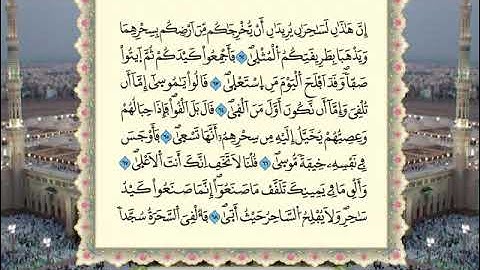 إِنَّ هَٰذَٰنِ لَسَٰحِرَٰنِ يُرِيدَٰنِ أَنْ يُّخْرِجَٰكُم مِّنَ اَرْضِكُم بِسِحْرِهِمَا
وَيَذْهَبَا بِطَرِيقَتِكُمُ اُلْمُثْلَىٰ ٦٢ فَأَجْمِعُواْ كَيْدَكُمْ ثُمَّ اَيتُواْ
صَفّاً وَقَدَ اَفْلَحَ اَلْيَوْمَ مَنِ اِسْتَعْلَىٰ ٦٣ قَالُواْ يَٰمُوسَىٰ إِمَّا أَن
تُلْقِيَ وَإِمَّا أَن نَّكُونَ أَوَّلَ مَنَ اَلْقَىٰ ٦٤ قَالَ بَلَ اَلْقُواْ فَإِذَا حِبَالُهُمْ
وَعِصِيُّهُمْ يُخَيَّلُ إِلَيْهِ مِن سِحْرِهِمُۥ أَنَّهَا تَسْعَىٰ ٦٥ فَأَوْجَسَ
فِي نَفْسِهِۦ خِيفَةً مُّوسَىٰ ٦٦ قُلْنَا لَا تَخَفِ اِنَّكَ أَنتَ اَلَاعْلَىٰ ٦٧
وَأَلْقِ مَا فِي يَمِينِكَ تَلَقَّفْ مَا صَنَعُواْ إِنَّمَا صَنَعُواْ كَيْدُ
سَٰحِرٍ وَلَا يُفْلِحُ اُلسَّاحِرُ حَيْثُ أَتَىٰ ٦٨ فَأُلْقِيَ اَلسَّحَرَةُ سُجَّداً